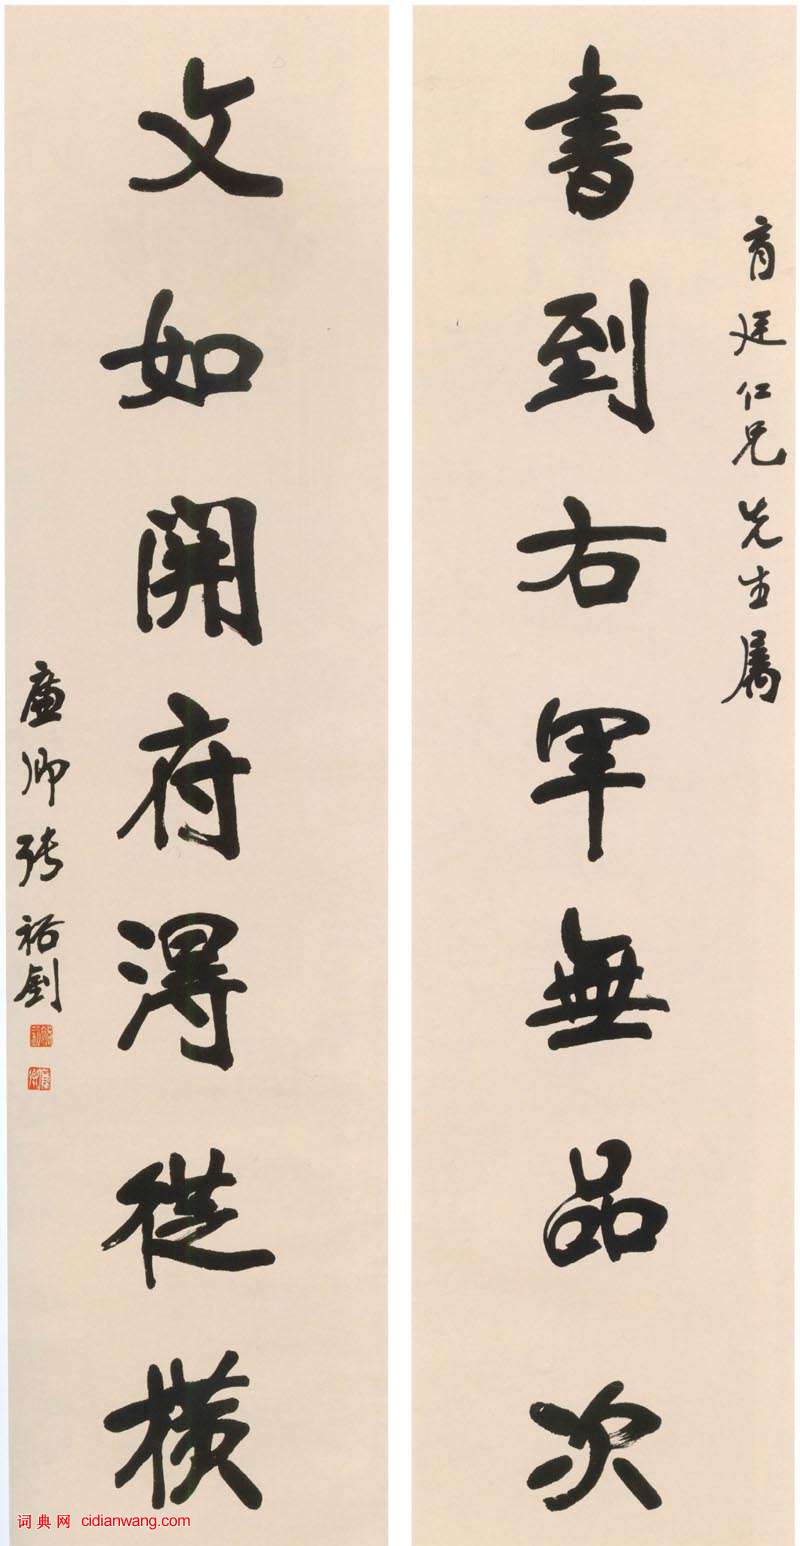 育廷仁兄先生屬
書到右軍無品次
文如開府淂從橫
廉卿張裕釗
词典网 cidianwang.com